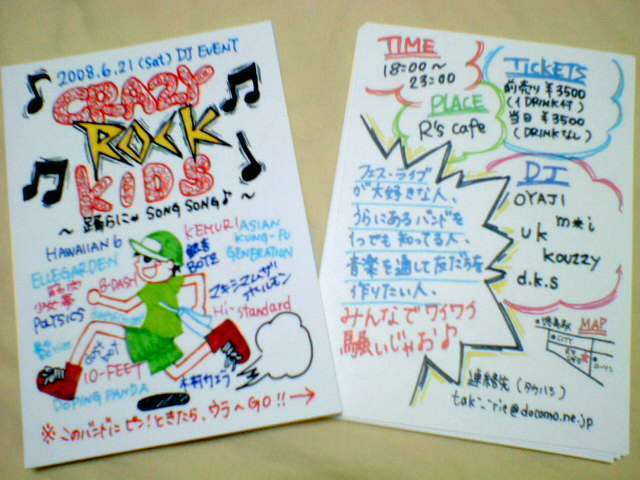 2008.6.21 (Sat) DJ EVENT
CRAZY
ROCK
KIDS
～踊らにゃ SONG SONG♪～
HAWAIIAN 6
KEMURI
ASIAN
KUNG-FU
GENERATION
ELLEGARDEN
B-DASH
観音
BOYZ
筋肉
少女帯
マキシマムザ
ホルモン
POLYSICS
Hi-standard
GOT'S
10-FEET
DOPING PANDA
木村カエラ
※このバンドにピン！ときたら、ウラへGO!!→
TIME
18:00～
23:00
TICKETS
前売り ¥3500
(1DRINK付)
当日 ¥3500
(DRINKなし)
PLACE
R's cafe
フェス・ライブ
が大好きな人、
うらにあるバンドを
1つでも知ってる人、
音楽を通して友だちを
作りたい人、
みんなでワイワイ
騒いじゃお♪
DJ
OYAJI
m*i
uk
kouzzy
d.k.s
MAP
CITY
連絡先 (タケハラ)